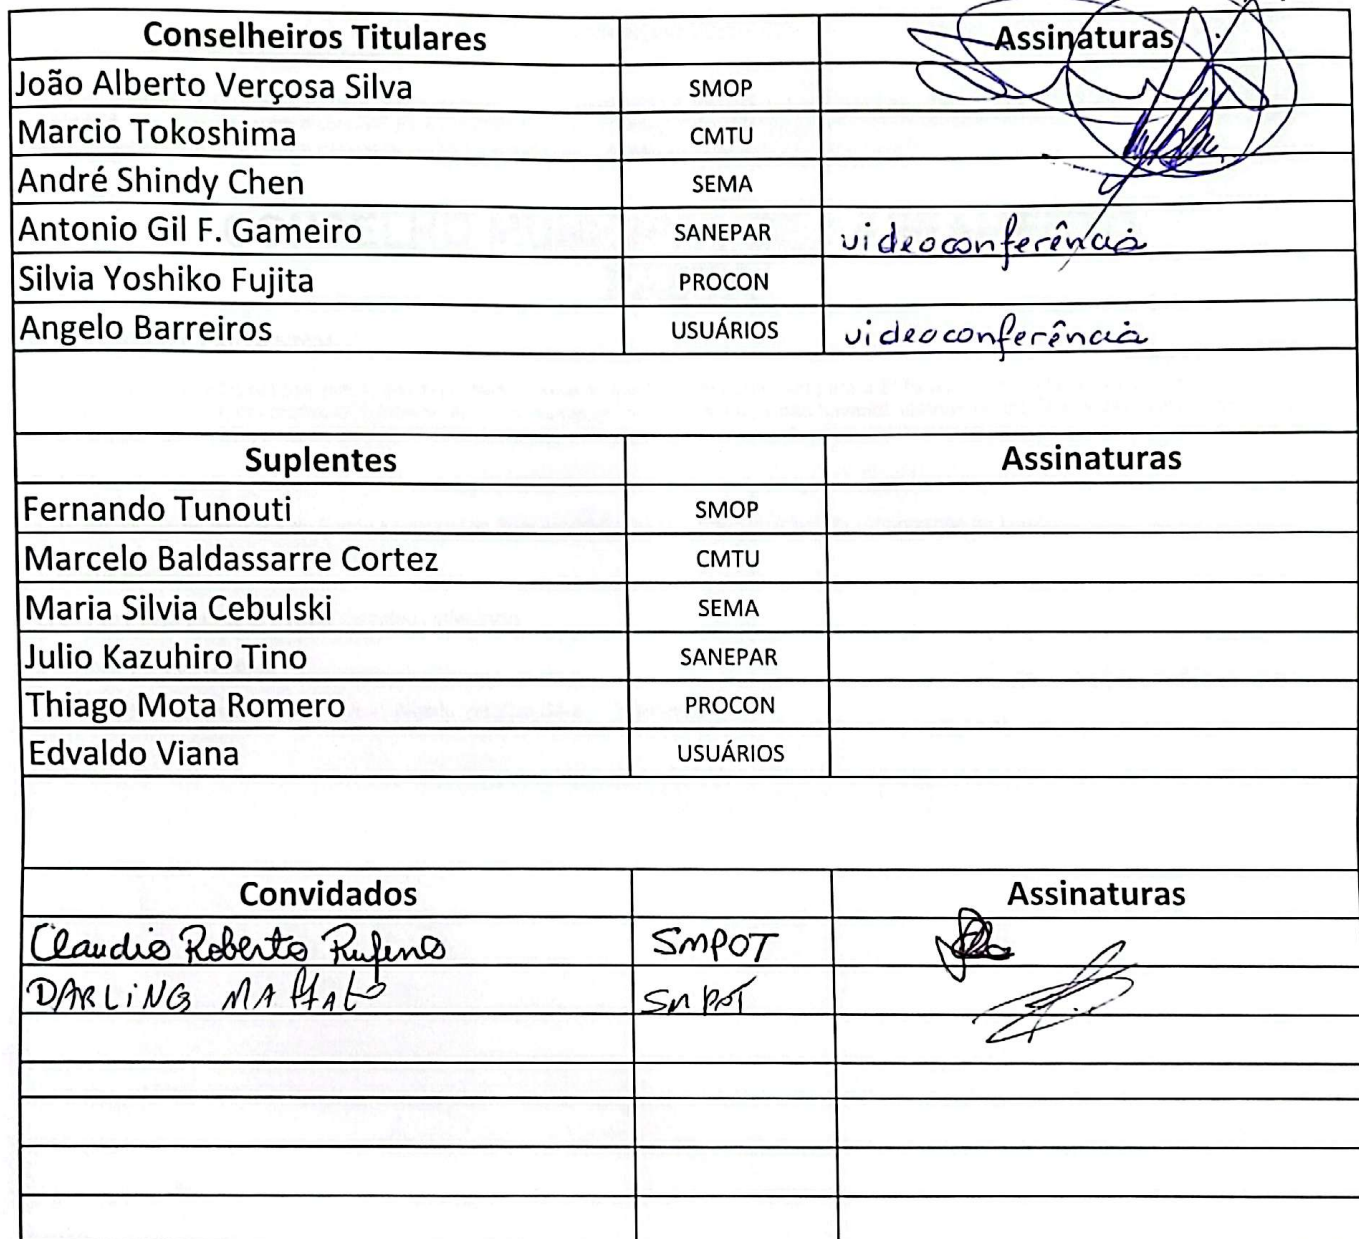 Conselheiros Titulares Assinaturas
João Alberto Verçosa Silva SMOP
Marcio Tokoshima CMTU
André Shindy Chen SEMA
Antonio Gil F. Gameiro SANEPAR videoconferência
Silvia Yoshiko Fujita PROCON
Angelo Barreiros USUÁRIOS videoconferência
Suplentes Assinaturas
Fernando Tunouti SMOP
Marcelo Baldassarre Cortez CMTU
Maria Silvia Cebulski SEMA
Julio Kazuhiro Tino SANEPAR
Thiago Mota Romero PROCON
Edvaldo Viana USUÁRIOS
Convidados Assinaturas
Claudio Roberto Rufino SMPOT
DARLING SMPOT